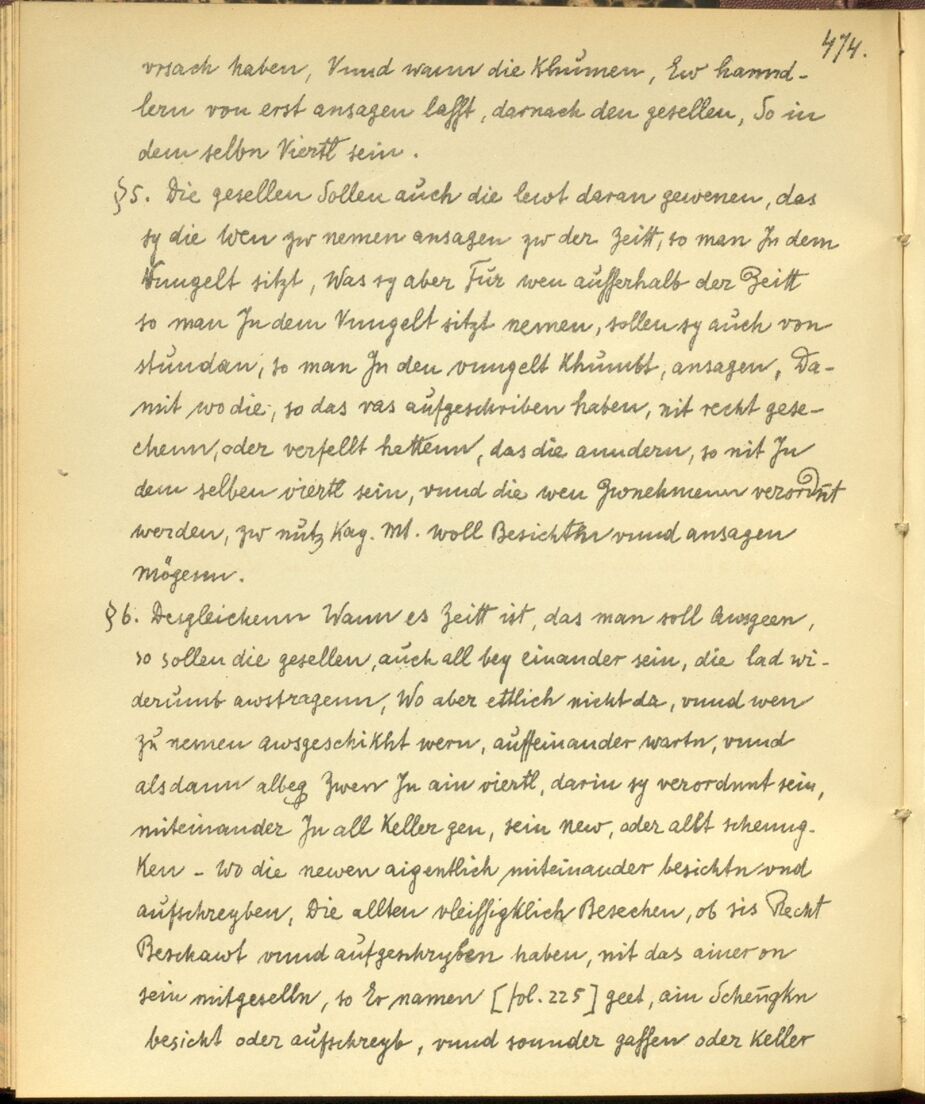 474.
vrsach haben, Vnnd wann die Khumen, Ew hannd-
lern von erst ansagen lasst, darnach den gesellen, So in
dem selbn Viertl sein.
§5. Die gesellen Sollen auch die lewt daran gewenen, das
sy die wen zw nemen ansagen zw der Zeitt, so man In dem
Vnngelt sitzt, Was sy aber Für wen ausserhalb der Zeitt
so man In dem Vnngelt sitzt nemen, sollen sy auch von
stundan, so man In den vnngelt Khumbt, ansagen, Da-
mit wo die, so das vas aufgeschriben haben, nit recht gese-
chenn, oder verfellt hettenn, das die anndern, so nit In
dem selben viertl sein, vnnd die wen Zwnehmenn verordnt
werden, zw nutz Kay. Mt. woll Besichtn vnnd ansagen
mögenn.
§6. Desgleichenn Wann es Zeitt ist, das man soll Awsgeen,
so sollen die gesellen, auch all bey einander sein, die lad wi-
derumb awstragenn, Wo aber ettlich nicht da, vnnd wen
zu nemen awsgeschikht wern, auffeinander wartn, vnnd
alsdann albeg Zwen In ain viertl, darin sy verordnnt sein,
miteinander In all Keller gen, sein new, oder allt schenng-
Ken - Wo die newen aigentlich miteinander besichtn vnd
aufschreyben, Die allten vleissigklich Besechen, ob sis Recht
Beschawt vnnd aufgeschryben haben, nit das ainer on
sein mitgeselln, so Er namen [fol. 225] geet, ain Schengkn
besicht oder aufschreyb, vnnd sonnder gassen oder Keller